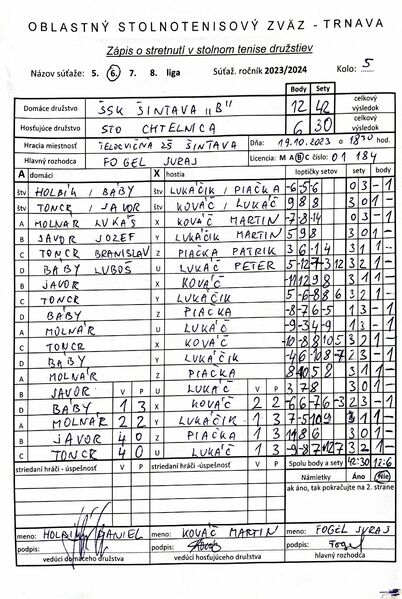 OBLASTNÝ STOLNOTENISOVÝ ZVÄZ - TRNAVA
Zápis o stretnutí v stolnom tenise družstiev
Názov súťaže: 5. 6. 7. 8. liga Súťaž. ročník 2023/2024 Kolo: 5
Body Sety
Domáce družstvo ŠSK ŠINTAVA "B" 12 42 celkový výsledok
Hosťujúce družstvo STO CHTELNICA 6 30 celkový výsledok
Hracia miestnosť TELOCVIČNA ZŠ ŠINTAVA Dňa: 19.10.2023 o 18:30 hod.
Hlavný rozhodca FOGEL JURAJ Licencia: M A B C číslo: 01 184
A domáci X hostia loptičky setov sety body
štv HOLBÍK / BABY štv LUKÁČIK / PIAČKA 03 - 1
štv TONCR / JAVOR štv KOVÁČ / LUKÁČ 9 8 8 30 1 -
A MOLNÁR LUKÁŠ X KOVÁČ MARTIN -7 -8 -14 03 - 1
B JAVOR JOZEF Y LUKÁČIK MARTIN 5 9 8 30 1 -
C TONCR BRANISLAV Z PIAČKA PATRIK 31 1 -
D BABY LUBOŠ U LUKÁČ PETER 32 1 -
B JAVOR X KOVÁČ 31 1 -
C TONCR Y LUKÁČIK 32 1 -
D BABY Z PIAČKA -8 -7 6 -5 13 - 1
A MOLNÁR U LUKÁČ -9 -3 4 -9 13 - 1
C TONCR X KOVÁČ 32 1 -
D BABY Y LUKÁČIK 23 - 1
A MOLNÁR Z PIAČKA 31 1 -
B JAVOR V P U LUKÁČ V P 3 7 8 30 1 -
D BABY 1 3 X KOVÁČ 2 2 23 - 1
A MOLNÁR 2 2 Y LUKÁČIK 1 3 31 1 -
B JAVOR 4 0 Z PIAČKA 1 3 30 1 -
C TONCR 4 0 U LUKÁČ 1 3 32 1 -
striedaní hráči - úspešnosť V P striedaní hráči - úspešnosť V P Spolu body a sety 42:30 12:6
Námietky Áno Nie
ak áno, tak pokračujte na 2. strane
meno: HOLBÍK DANIEL meno: KOVÁČ MARTIN meno: FOGEL JURAJ
podpis: podpis: podpis: Fogel
vedúci domáceho družstva vedúci hosťujúceho družstva hlavný rozhodca